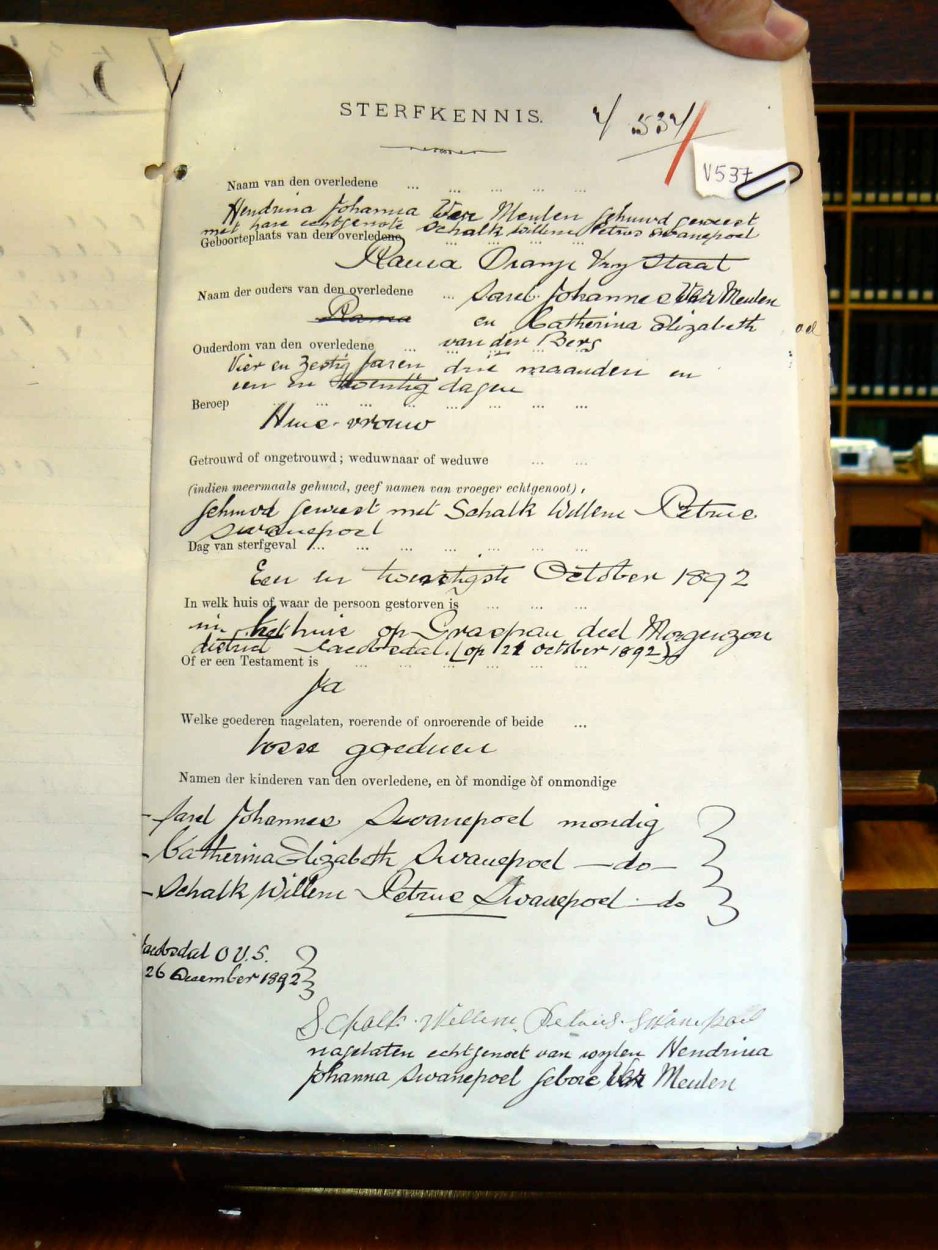 STERFKENNIS.
V 537
V537
Naam van den overledene ... ... ... ... ...
Hendrina Johanna Van Meulen gehuwd geweest
met hare echtgenote Schalk Willem Petrus Swanepoel
Geboorteplaats van den overledene ... ... ... ...
Rama Oranje Vry Staat
Naam der ouders van den overledene ... Sarel Johannes Van Meulen
Rama en Catherina Elizabeth
Ouderdom van den overledene ... van der Berg
Vier en Zestig Jaren drie maanden en
een en twentig dagen
Beroep ... ... ... ... ... ... ... ...
Huis-vrouw
Getrouwd of ongetrouwd; weduwnaar of weduwe ... ...
(indien meermaals gehuwd, geef namen van vroeger echtgenoot),
Gehuwd geweest met Schalk Willem Petrus
Swanepoel
Dag van sterfgeval ... ... ... ... ... ... ...
Een en twentigste October 1892
In welk huis of waar de persoon gestorven is ... ... ...
in het huis op Graspan deel Morgenzon
district Jacobsdal (op 21 October 1892)
Of er een Testament is ... ... ... ... ... ...
Ja
Welke goederen nagelaten, roerende of onroerende of beide ...
losse goederen
Namen der kinderen van den overledene, en òf mondige òf onmondige
- Sarel Johannes Swanepoel mondig
- Catherina Elizabeth Swanepoel - do -
- Schalk Willem Petrus Swanepoel - do
Jacobsdal O.V.S.
26 December 1892
Schalk Willem Petrus Swanepoel
nagelaten echtgenoot van wylen Hendrina
Johanna Swanepoel gebore Van Meulen